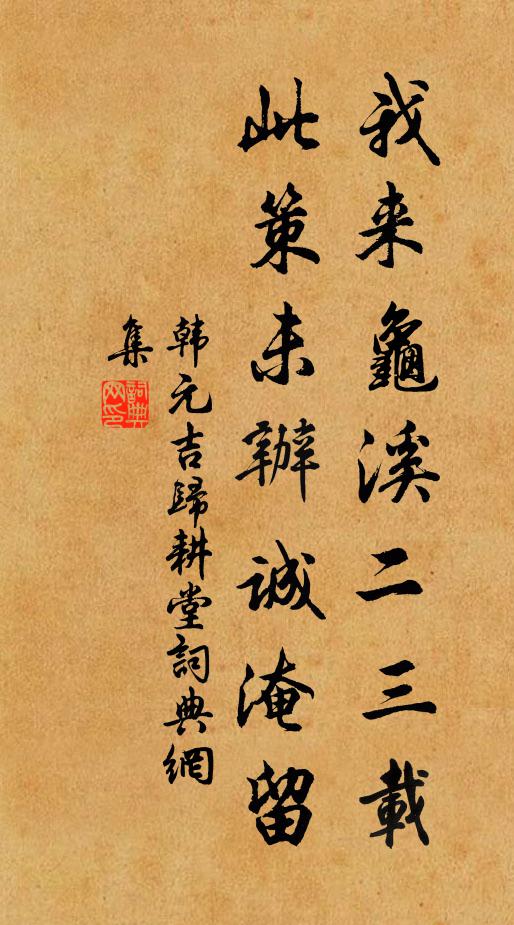 我来龜溪二三載
此策未辦誠淹留
韩元吉歸耕堂詞典網
集
詞典网印